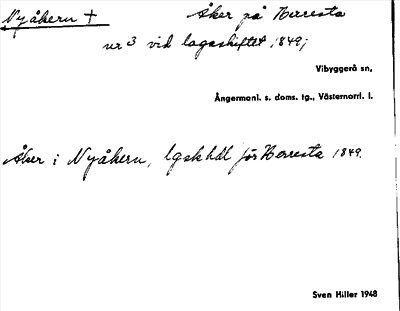 Nyåkern +
Åker på Norresta
nr 3 vid lagaskiftet 1849;
Vibyggerå sn,
Ångermanl. s. doms. tg., Västernorrl. l.
Åker i Nyåkern, lgskhdl för Norresta 1849.
Sven Hiller 1948